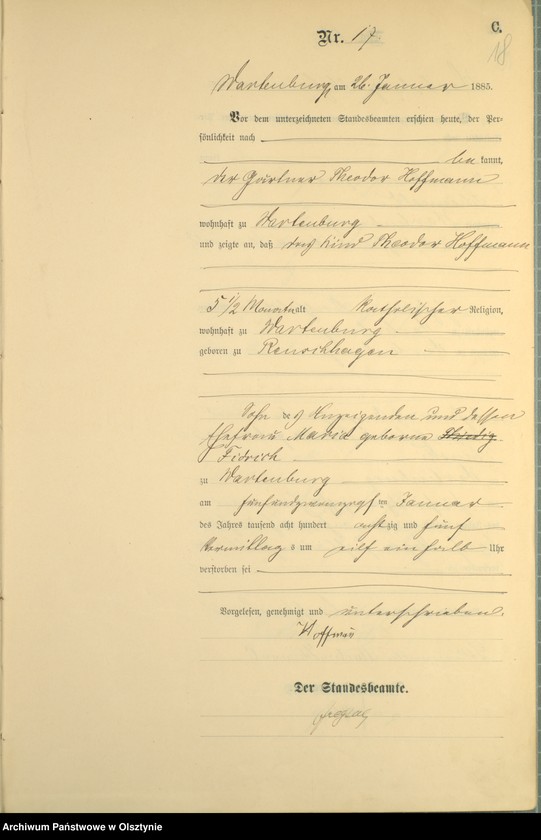 C.
Nr. 17
18
Wartenburg, am 26. Januar 1885.
Vor dem unterzeichneten Standesbeamten erschien heute, der Per-
sönlichkeit nach
be kannt,
der Gärtner Theodor Hoffmann
wohnhaft zu Wartenburg
und zeigte an, daß das Kind Theodor Hoffmann
5 1/2 Monate alt katholischer Religion,
wohnhaft zu Wartenburg
geboren zu Reuschhagen
Sohn des Anzeigenden und dessen
Ehefrau Maria geborene
Fidrich
zu Wartenburg
am fünfundzwanzigsten Januar
des Jahres tausend acht hundert achtzig und fünf
Vormittags um eilf einhalb Uhr
verstorben sei
Vorgelesen, genehmigt und unterschrieben.
Hoffman
Der Standesbeamte.
Archiwum Państwowe w Olsztynie